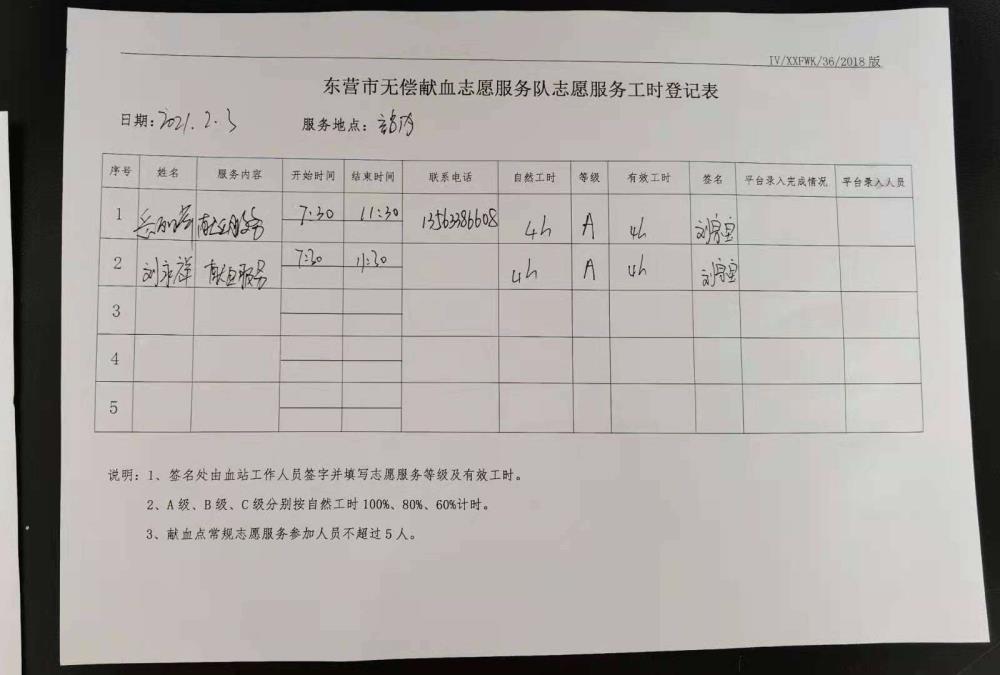 IV/XXFWK/36/2018 版
东营市无偿献血志愿服务队志愿服务工时登记表
日期:2021.2.3 服务地点:
序号 姓名 服务内容 开始时间 结束时间 联系电话 自然工时 等级 有效工时 签名 平台录入完成情况 平台录入人员
1 献血服务 7:30 11:30 13563386608 4h A 4h
2 刘永祥 献血服务 7:30 11:30 4h A 4h
3
4
5
说明:1、签名处由血站工作人员签字并填写志愿服务等级及有效工时。
2、A 级、B 级、C 级分别按自然工时 100%、80%、60%计时。
3、献血点常规志愿服务参加人员不超过 5 人。